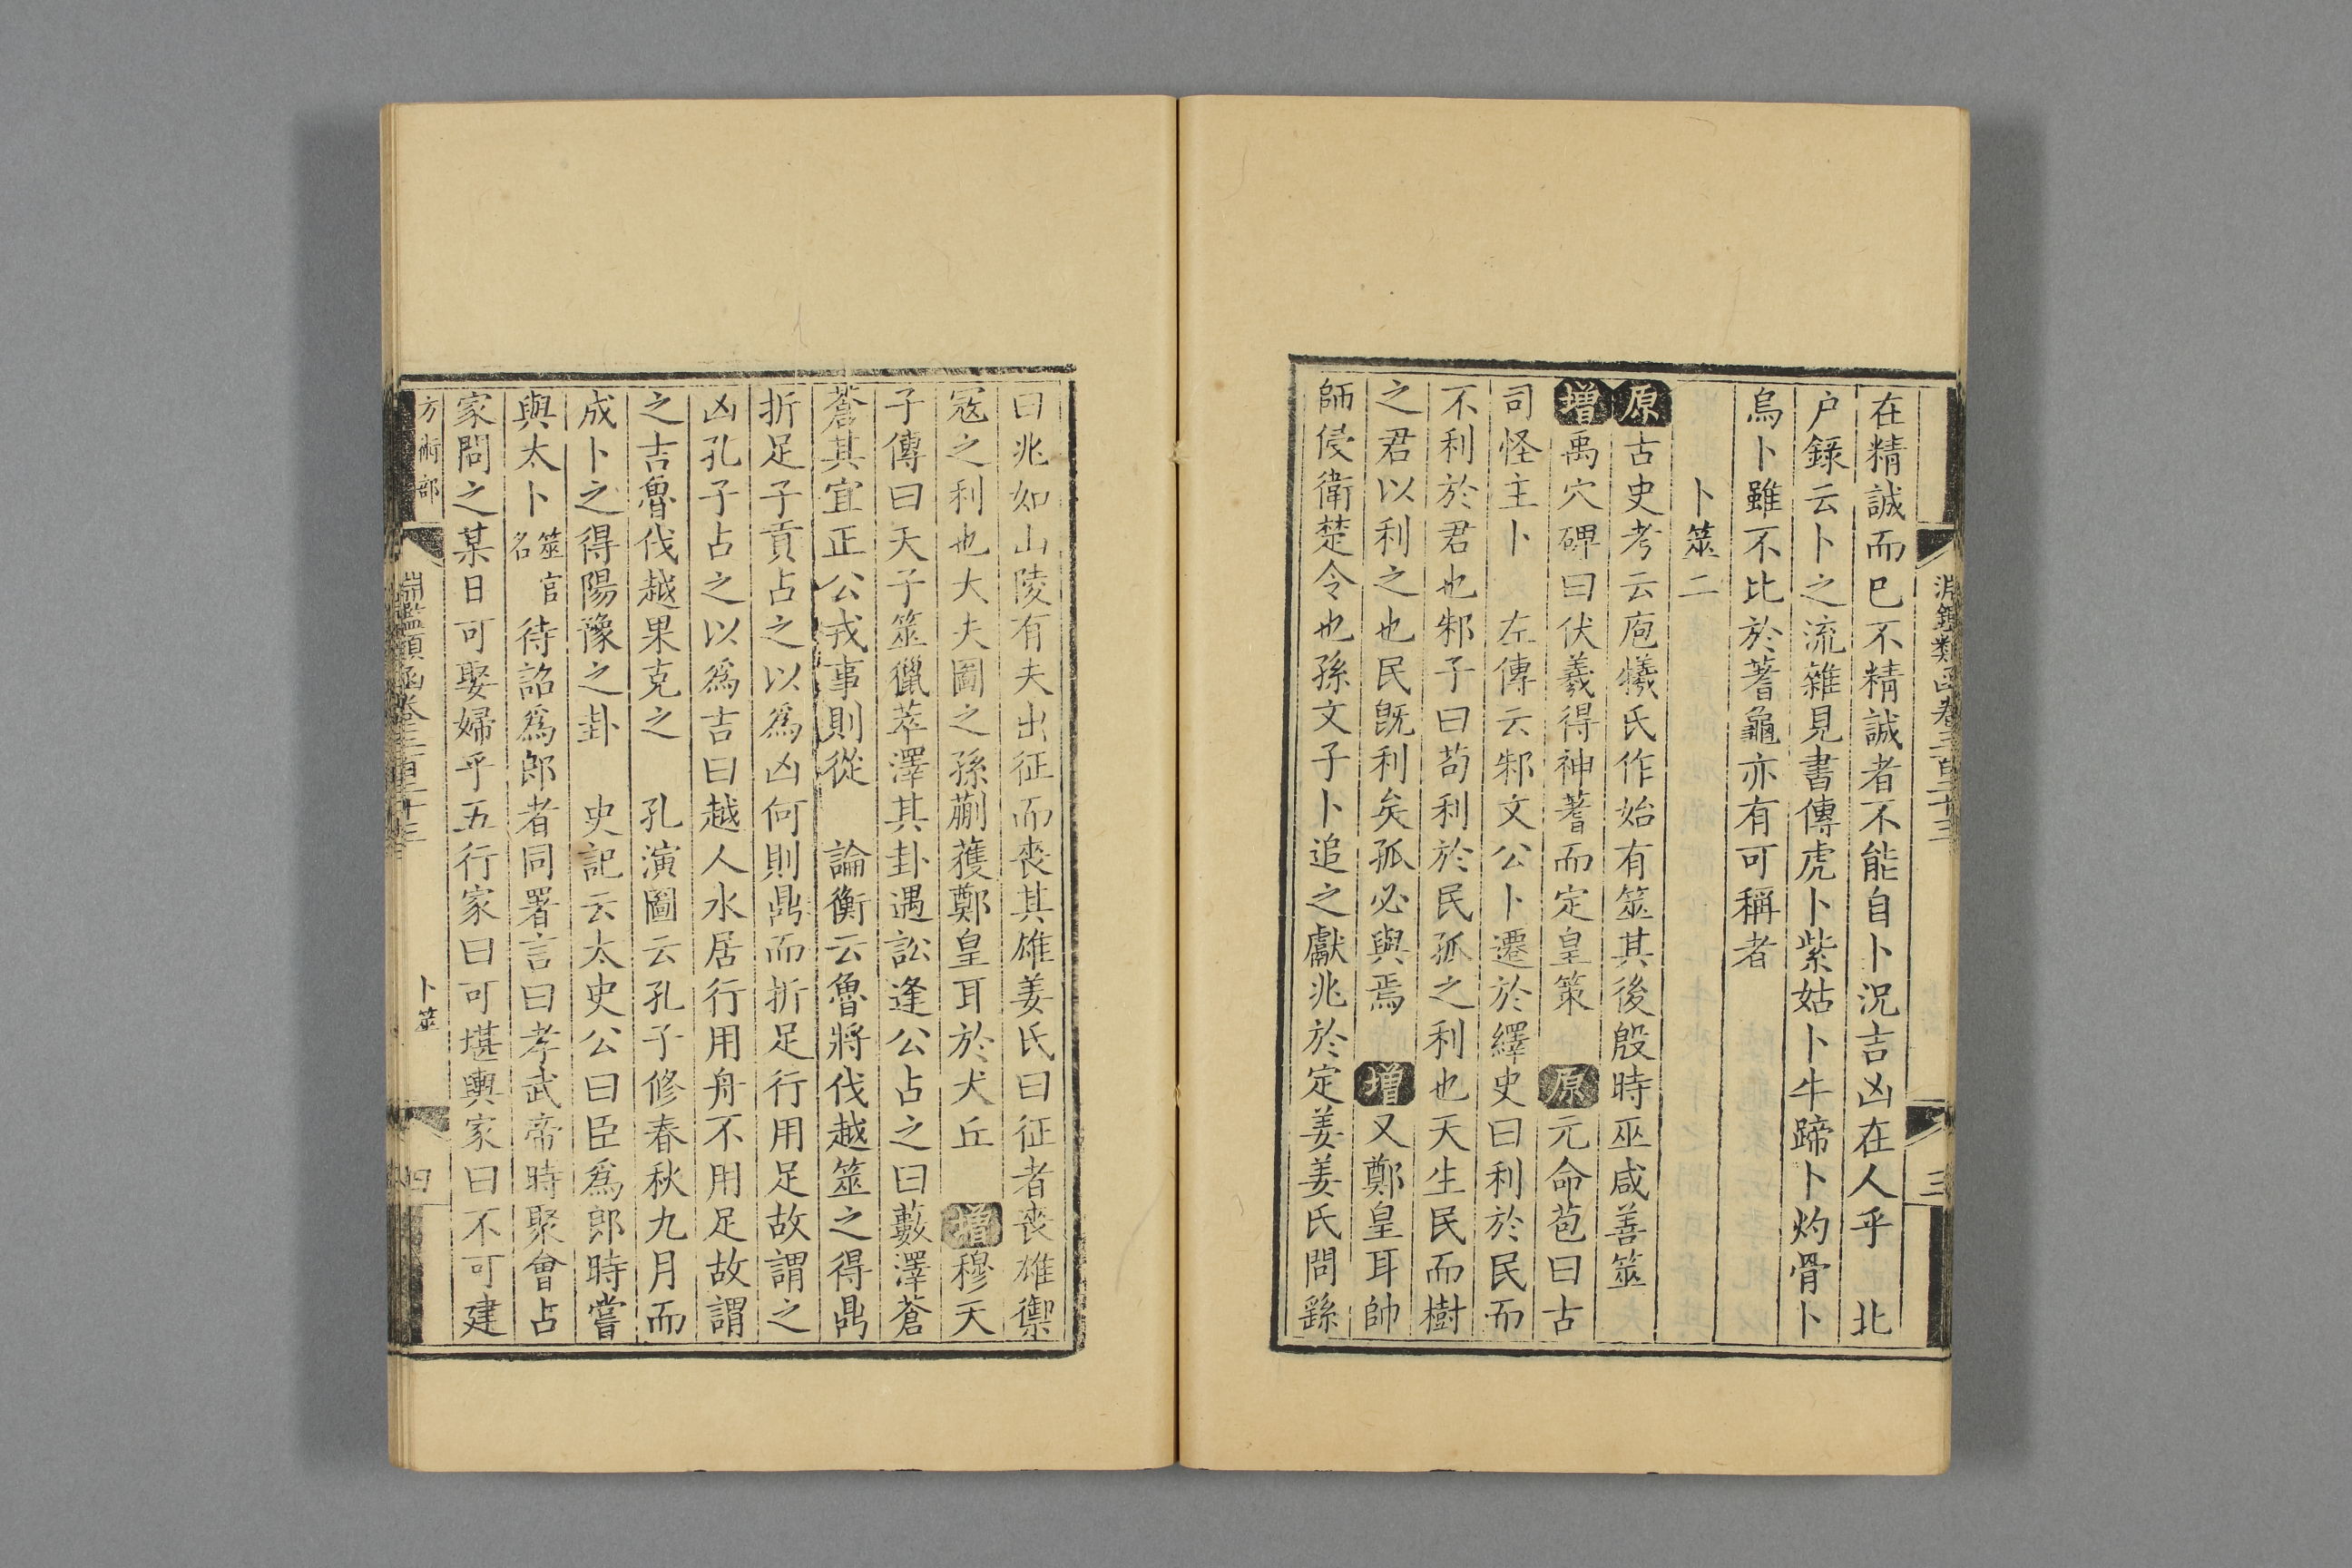 淵鑑類函卷三百二十三
三
在精誠而已不精誠者不能自卜況吉凶在人乎　北
户錄云卜之流雜見書傳虎卜紫姑卜牛蹄卜灼骨卜
烏卜雖不比於蓍龜亦有可稱者
卜筮二
原古史考云庖犧氏作始有筮其後殷時巫咸善筮
增禹穴碑曰伏羲得神蓍而定皇策　原元命苞曰古
司怪主卜　左傳云邾文公卜遷於繹史曰利於民而
不利於君也邾子曰苟利於民孤之利也天生民而樹
之君以利之也民既利矣孤必與焉　增又鄭皇耳帥
師侵衛楚令也孫文子卜追之獻兆於定姜姜氏問繇
曰兆如山陵有夫出征而喪其雄姜氏曰征者喪雄禦
寇之利也大夫圖之孫蒯獲鄭皇耳於犬丘　增穆天
子傳曰天子筮獵苹澤其卦遇訟逢公占之曰藪澤蒼
蒼其宜正公戎事則從　論衡云魯將伐越筮之得鼎
折足子貢占之以為凶何則鼎而折足行用足故謂之
凶孔子占之以為吉曰越人水居行用舟不用足故謂
之吉魯伐越果克之　孔演圖云孔子修春秋九月而
成卜之得陽豫之卦　史記云太史公曰臣為郎時嘗
與太卜筮官名待詔為郎者同署言曰孝武帝時聚會占
家問之某日可娶婦乎五行家曰可堪輿家曰不可建
方術部
淵鑑類函卷三百二十三
卜筮
四